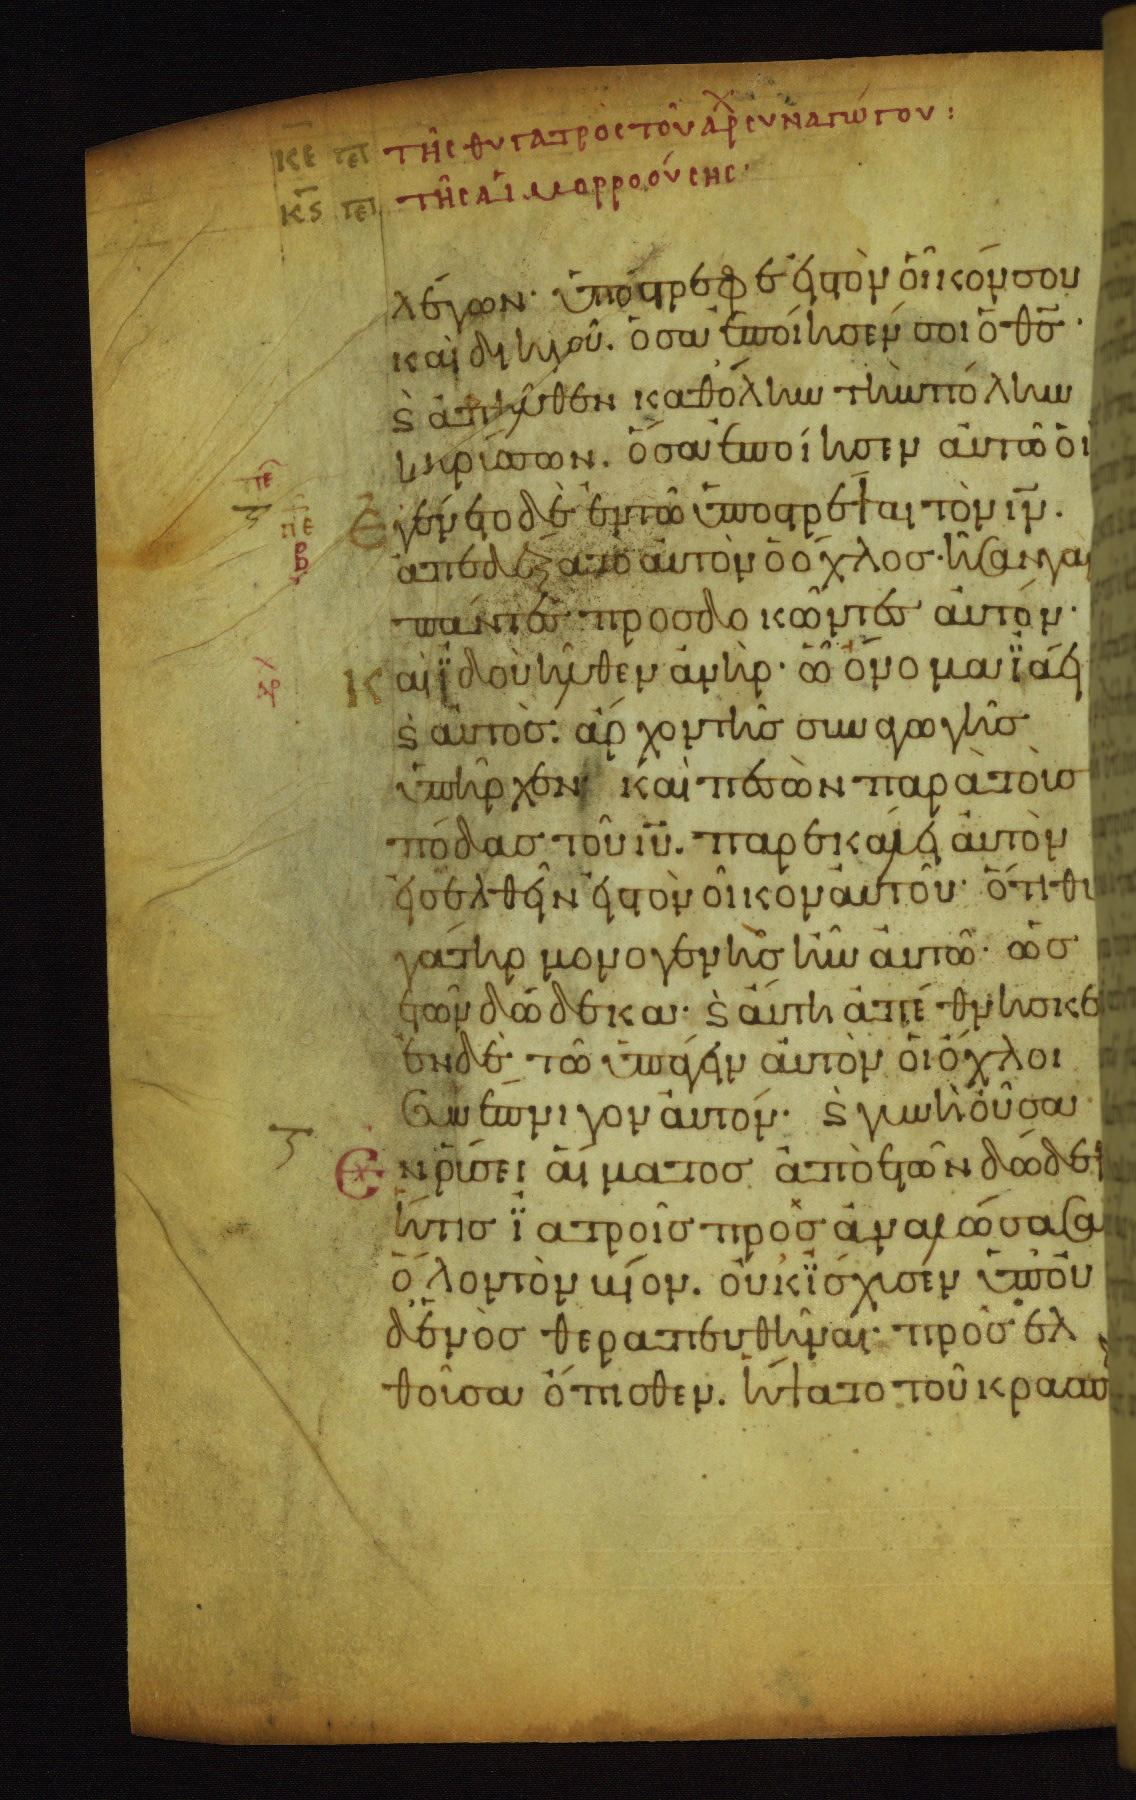 κε πε τῆς θυγατρὸς τοῦ ἀρχισυναγώγου:
κς πε τῆς αἱμορροούσης·
λέγων· ὑπόστρεφε εἰς τὸν οἶκόν σου
καὶ διηγοῦ. ὅσα ἐποίησέν σοι ὁ θς·
κ ἀπῆλθεν καθ' ὅλην τὴν πόλιν
κηρύσσων. ὅσα ἐποίησεν αὐτῶ ὁ ι
Εγένετο δὲ ἐν τῶ ὑποστρέψαι τὸν ιν.
ἀπεδέξατο αὐτὸν ὁ ὄχλος· ἦσαν γὰρ
πάντες προσδοκῶντες αὐτόν·
Και ἰδοὺ ἦλθεν ἀνὴρ· ὧ ὄνομα ἰάει
κ αὐτὸς. ἄρχον τῆς συναγωγῆς
ὑπῆρχεν καὶ πεσὼν παρὰ τοὺς
πόδας τοῦ ιυ. παρεκάλει αὐτὸν
εἰσελθεῖν εἰς τὸν οἶκον αὐτοῦ· ὅτι θυ
γάτηρ μονογενὴς ἦν αὐτῶ· ὡς
ἐτῶν δώδεκα· κ αὕτη ἀπέθνησκε
ἐν δὲ τῶ ὑπάγειν αὐτὸν οἱ ὄχλοι
συνέπνιγον αὐτόν· κ γυνὴ οὖσα
Εν ρύσει αἵματος ἀπὸ ἐτῶν δώδεκ
ἥτις ἰατροῖς προσαναλώσασα
ὅλον τὸν βίον. οὐκ ἴσχυσεν ὑπ' οὐ
δενὸς θεραπευθῆναι· προσελ
θοῦσα ὄπισθεν. ἥψατο τοῦ κρασπ